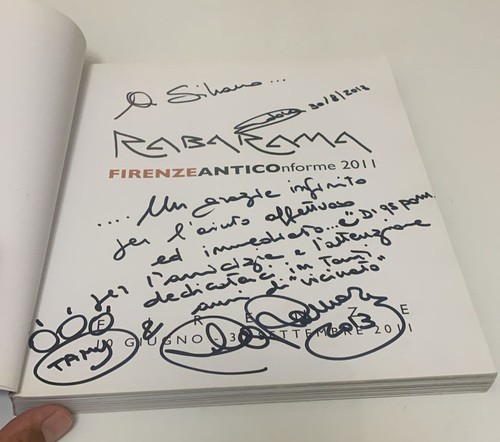 A Silvano...
30/8/2013
RABARAMA
FIRENZEANTICOnforme 2011
.... Un grazie infinito
per l'aiuto affettuoso
ed immediato... e
per l'amicizia e l'attenzione
dedicataci in tanti
anni di "vicinato"
FIRENZE
GIUGNO - 3 SETTEMBRE 2011
&
2013